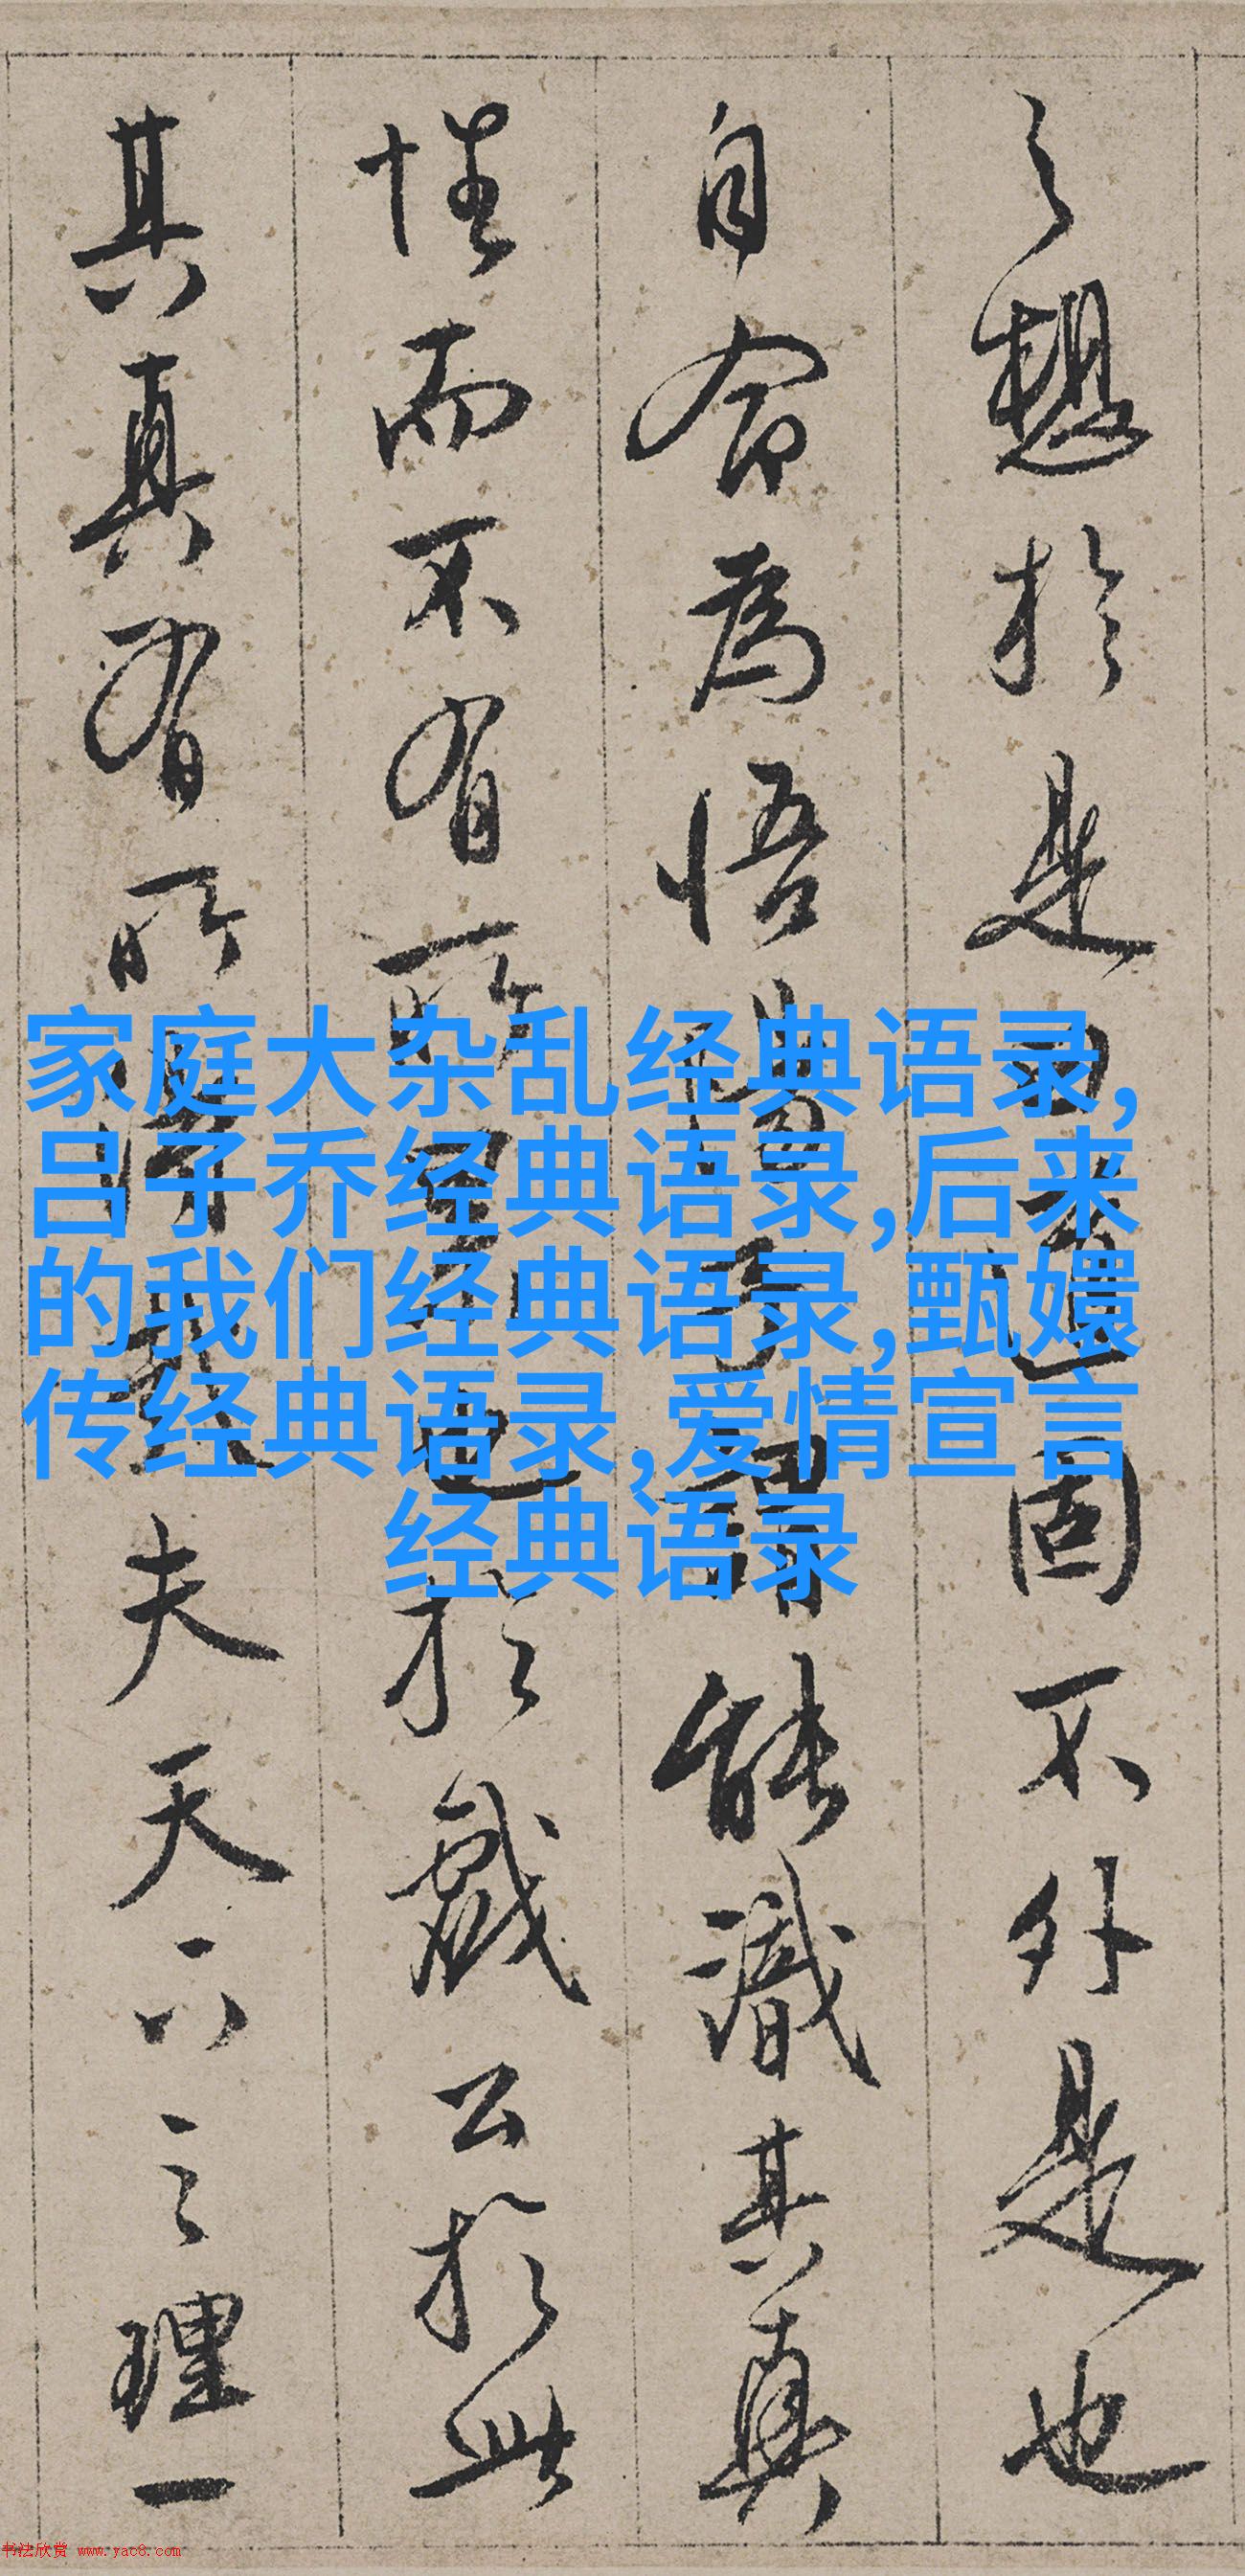 之想於是道固不外是也
自命為悟謂能識其真
性而不有所也於戲公於此
其真有所得夫天下之理一
家庭大杂乱经典语录,
吕子乔经典语录,后来
的我们经典语录,甄嬛
传经典语录,爱情宣言
经典语录
书法欣赏 www.yac8.com